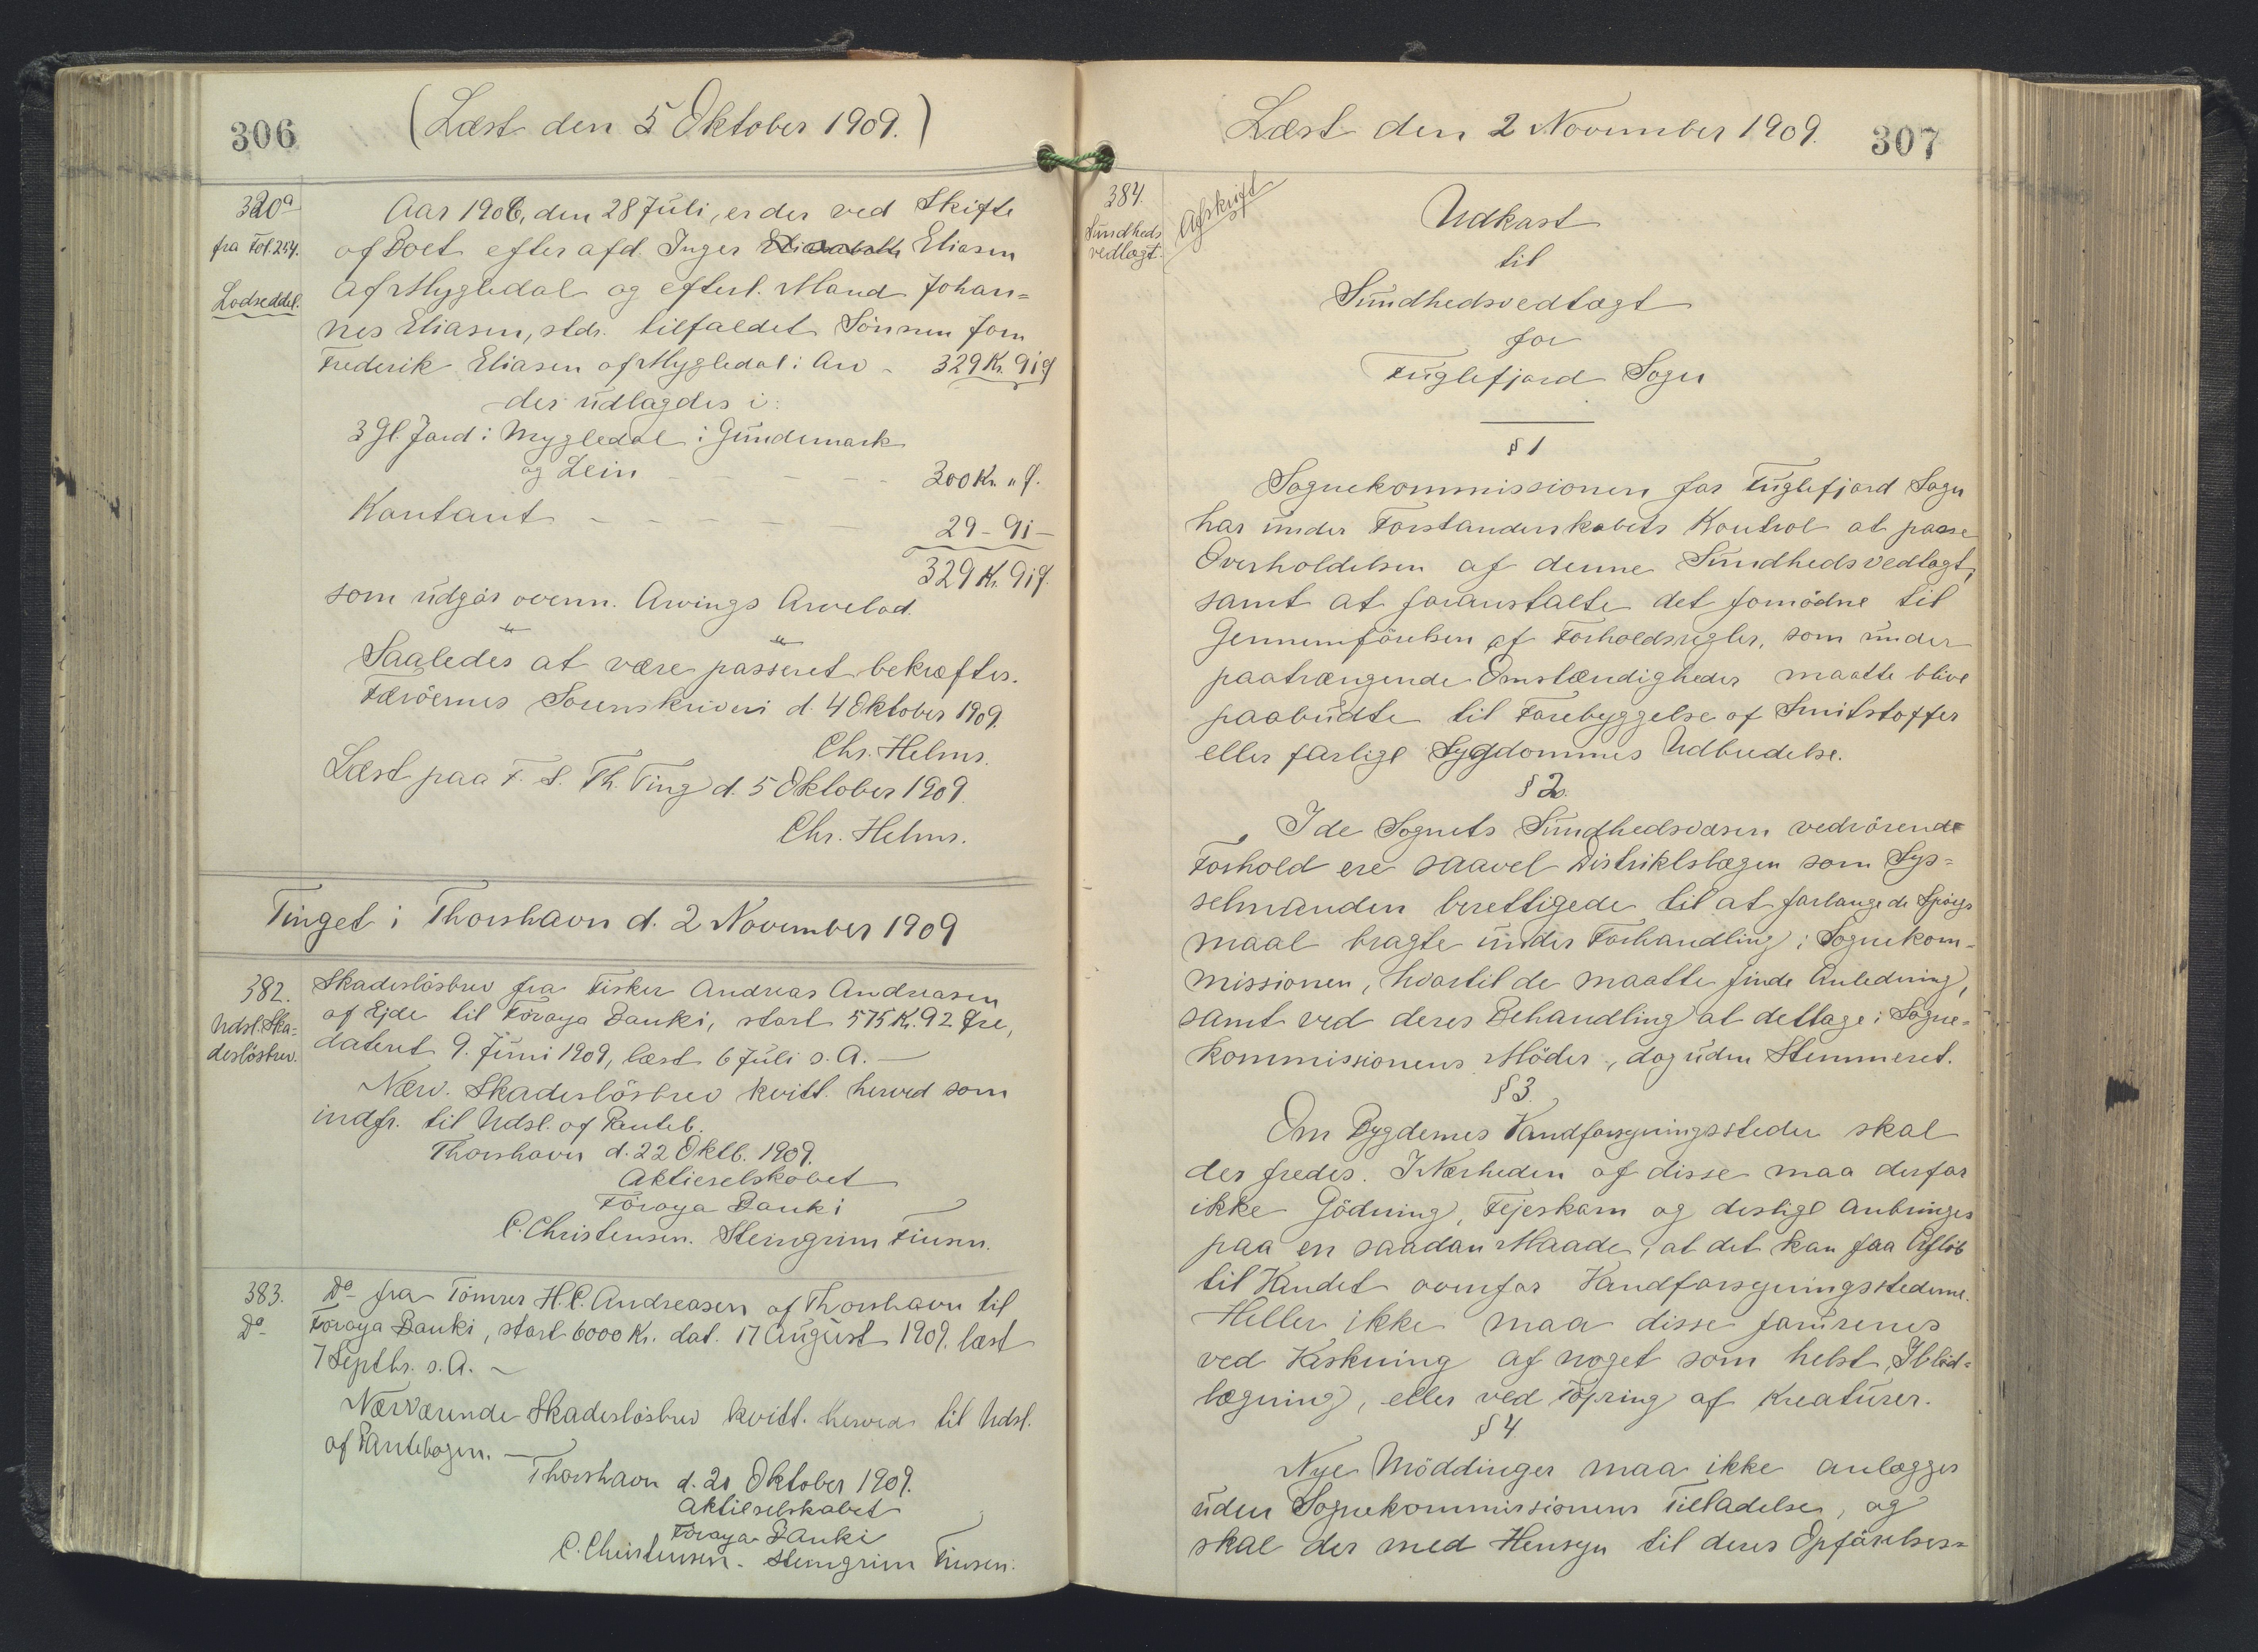 306
(Læst den 5 Oktober 1909.)
320a
fra Fol. 254.
Lodseddel.
Aar 1906, den 28 Juli, er der ved Skifte
af Boet efter afd. Inger Eliasen
af Mygledal og efterl. Mand Johan=
nes Eliasen, slds. tilfaldet Sönnen Joen
Frederik Eliasen af Mygledal i Arv - 329 Kr. 91 Ø
der udlagdes i:
3 Gl. Jord i Mygledal i Gundemark
og Lein - - - - 300 Kr. " Ø.
Kontant - - - - - 29 - 91 -
329 Kr. 91 Ø.
som udgör ovenn. Arvings Arvelod.
Saaledes at være passeret bekræftes.
Færöernes Sorenskriveri d. 4 Oktober 1909.
Chr. Helms.
Læst paa F. S. Th. Ting d. 5 Oktober 1909.
Chr. Helms.
Tinget i Thorshavn d. 2 November 1909
382.
Udsl. Ska=
deslösbrev.
Skadeslösbrev fra Fisker Andreas Andreasen
af Ejde til Föroya Banki, stort 575 Kr. 92 Øre,
dateret 9. Juni 1909, læst 6 Juli s. A. —
Nærv. Skadeslösbrev kvitt. herved som
indfr. til Udsl. af Panteb.
Thorshavn d. 22 Oktb. 1909.
Aktieselskabet
Föroya Banki
C. Christensen. Steingrim Finsen.
383.
Do
Do fra Tömrer H. C. Andreasen af Thorshavn til
Föroya Banki, stort 6000 Kr. dat. 17 August 1909. læst
7 Septbr. s. A. -
Nærværende Skadeslösbrev kvitt. herved til Udsl.
af Pantebogen. —
Thorshavn d. 21 Oktober 1909.
Aktieselskabet
Föroya Banki
C. Christensen - Steingrim Finsen.
Læst den 2 November 1909.
307
384.
Sundheds
vedtægt.
Afskrift
Udkast
til
Sundhedsvedtægt
for
Fuglefjord Sogn
§ 1
Sognekommissionen for Fuglefjord Sogn
har under Forstanderskabets Kontrol at passe
Overholdelsen af denne Sundhedsvedtægt,
samt at foranstalte det fornödne til
Gennemförelsen af Forholdsregler, som under
paatrængende Omstændigheder maatte blive
paabudte til Forebyggelse af Smitstoffer
eller farlige Sygdommes Udbredelse.
§ 2.
I de Sognets Sundhedsvæsen vedrörende
Forhold ere saavel Distriktslægen som Sys=
selmanden berettigede til at forlange de Spörgs
maal bragte under Forhandling i Sognekom=
missionen, hvortil de maatte finde Anledning,
samt ved deres Behandling at deltage i Sogne=
kommissionens Möder, dog uden Stemmeret.
§ 3.
Om Bygdernes Vandforsyningssteder skal
der fredes. I Nærheden af disse maa derfor
ikke Gödning, Fejeskarn og deslige anbringes
paa en saadan Maade, at det kan faa Aflöb
til Vandet ovenfor Vandforsyningsstederne.
Heller ikke maa disse forurenes
ved Vaskning af noget som helst, Iblöd=
lægning, eller ved Töjring af Kreaturer.
§ 4
Nye Möddinger maa ikke anlægges
uden Sognekommissionens Tilladelse, og
skal der med Hensyn til deres Opförelses=